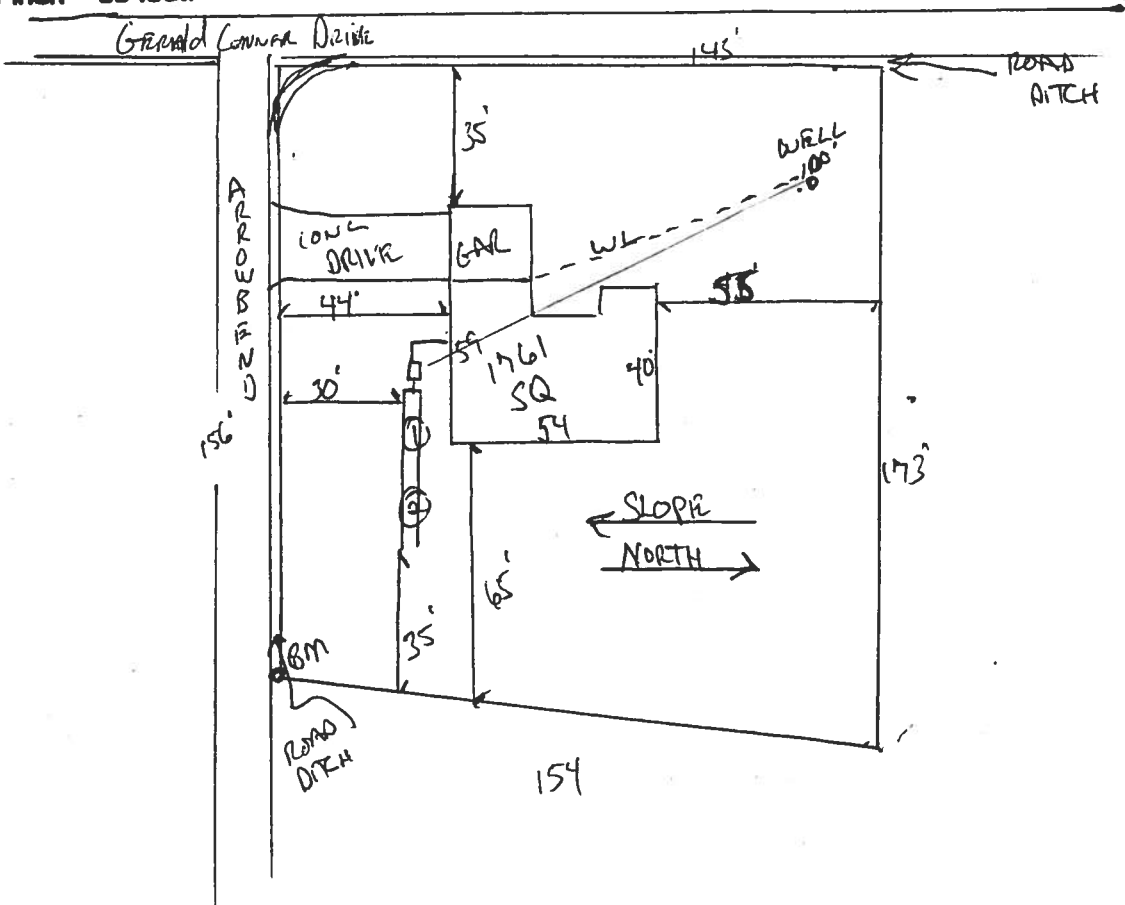 GERALD CONNER DRIVE
145'
ROAD
DITCH
35'
WELL
100'
ARROWBEND
CONC
DRIVE
GAR
WL
44'
55'
59
1761
SQ
40'
54
30'
①
②
156'
173'
SLOPE
NORTH
65'
35'
BM
ROAD
DITCH
154